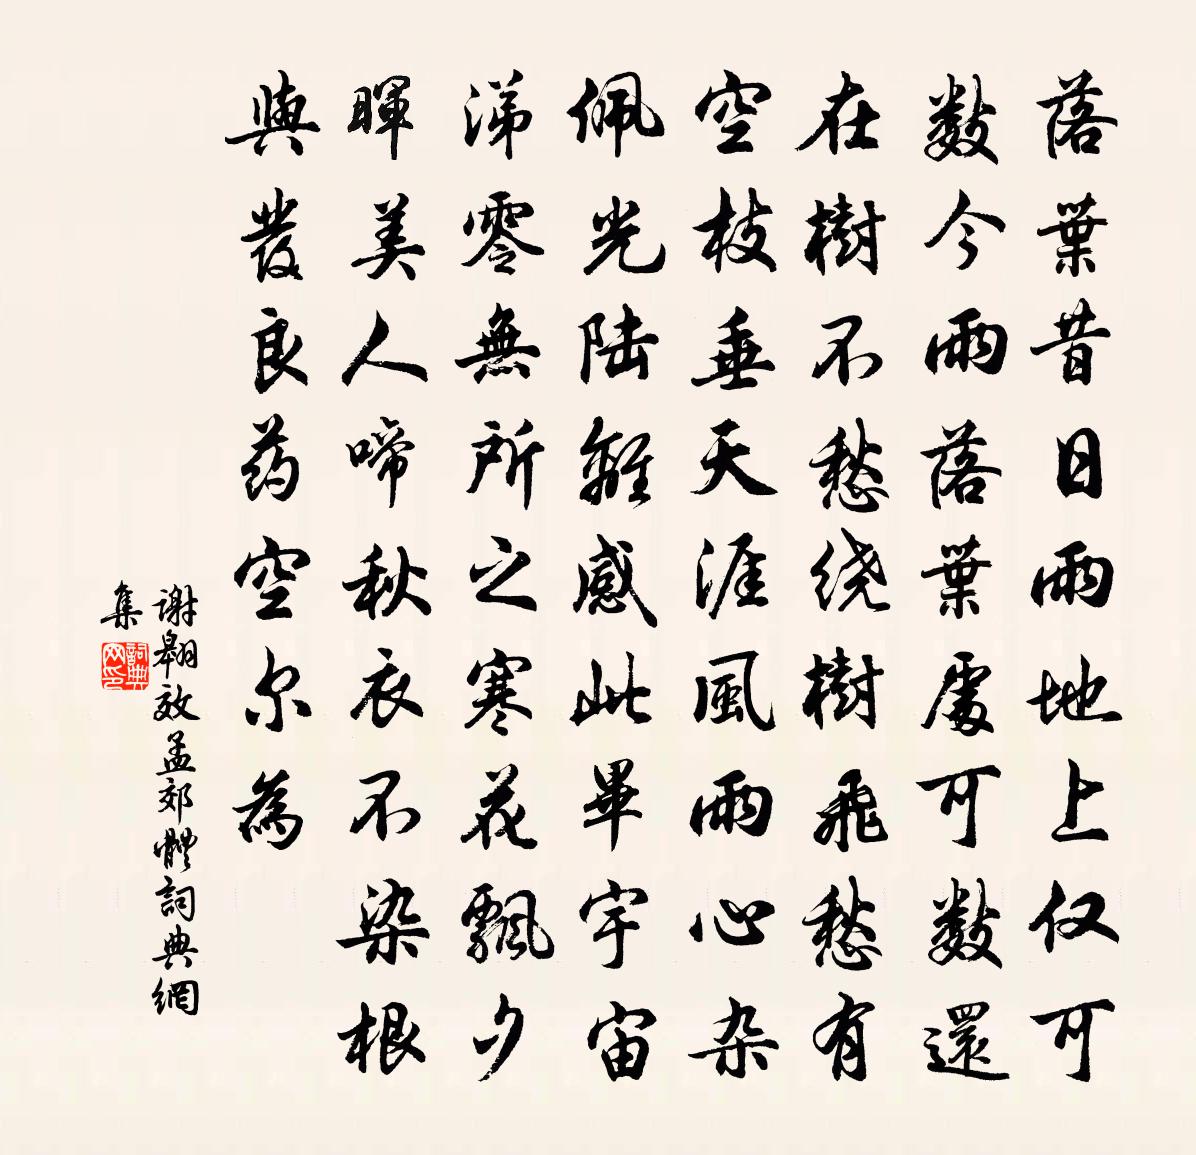 落葉昔日雨地上仅可
數今雨落葉處可數還
在樹不愁绕樹飛愁有
空枝垂天涯風雨心杂
佩光陆離感此畢宇宙
涕零無所之寒花飄夕
暉美人啼秋衣不染根
與發良药空尔為
谢翱效孟郊體詞典網
集
詞典
网印